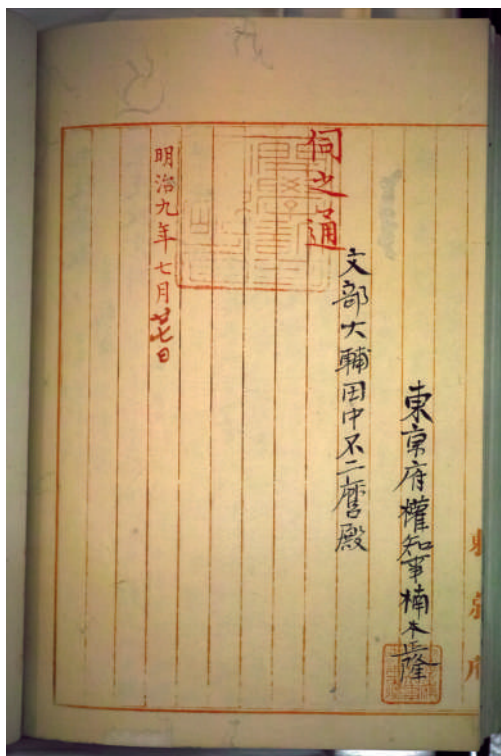 東京府
東京府權知事楠本正隆
文部大輔田中不二麿殿
伺之通
明治九年七月廿七日